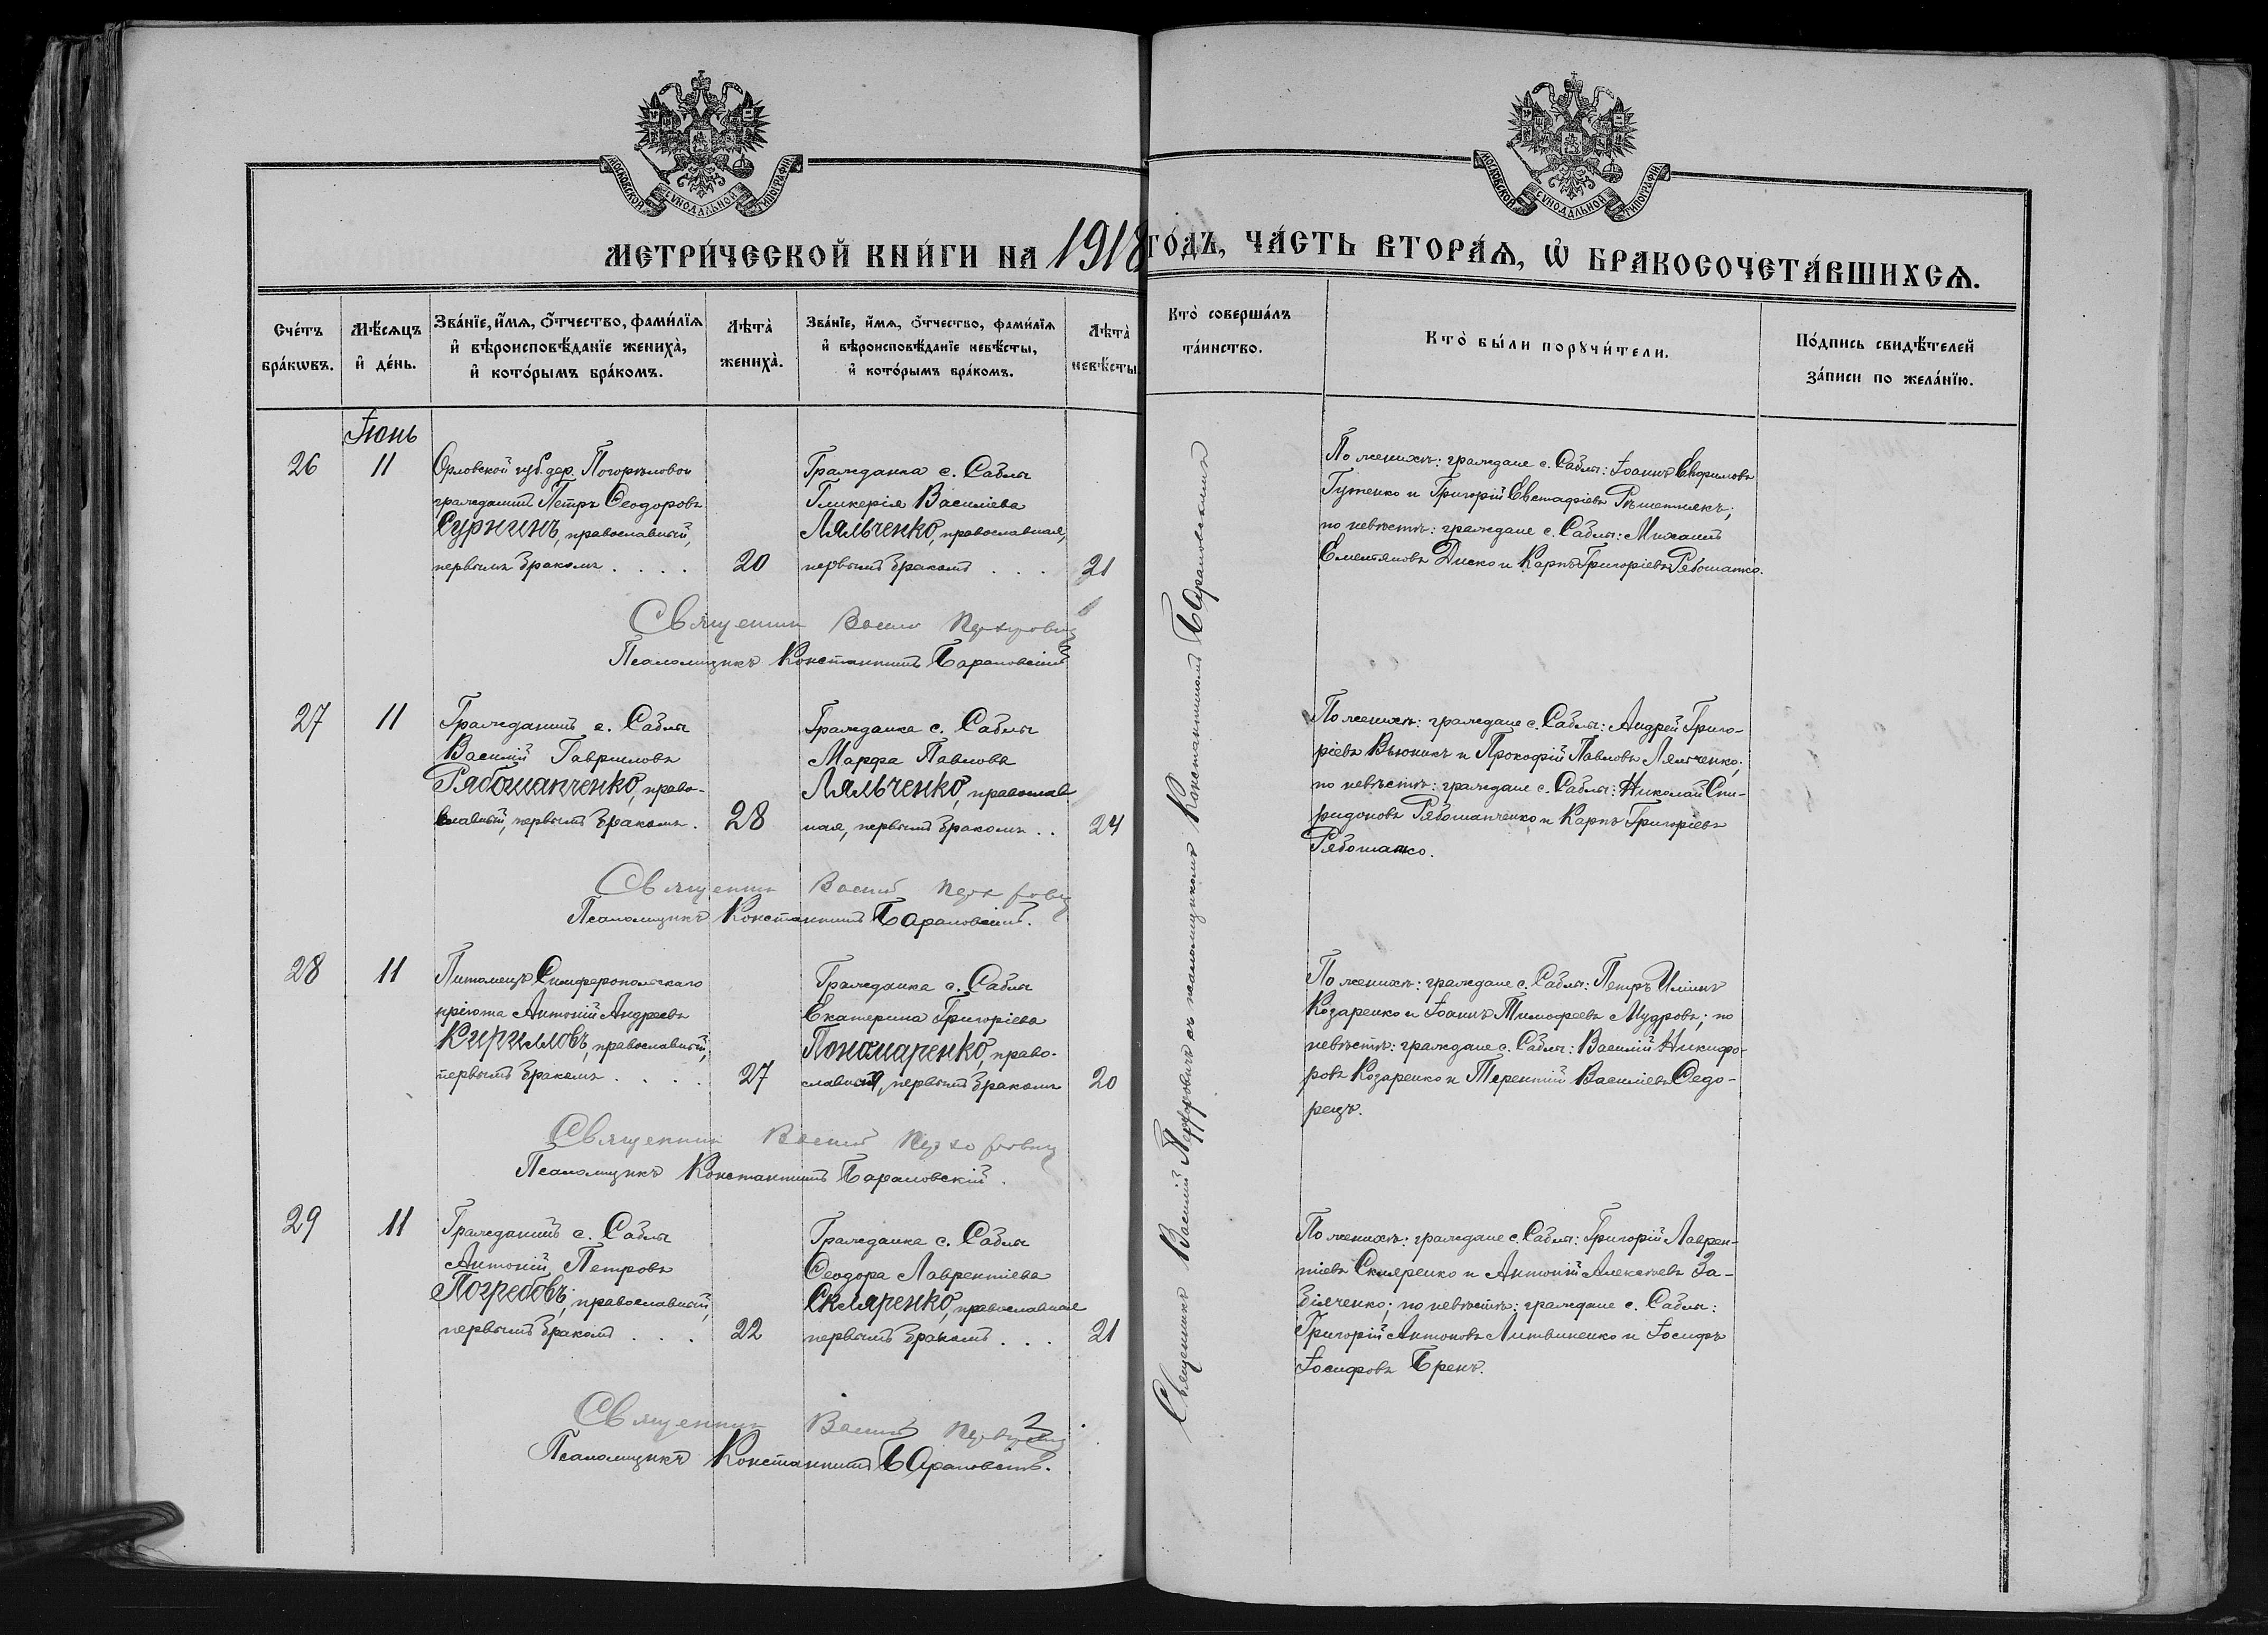 МОСКОВСКОЙ СѴНОДАЛЬНОЙ ТИПОГРАФІИ
МОСКОВСКОЙ СѴНОДАЛЬНОЙ ТИПОГРАФІИ
МЕТРИ́ЧЕСКОЙ КНИ́ГИ НА 1918 ГО́ДЪ, ЧА́СТЬ ВТОРА́Ѧ, Ѽ БРАКОСОЧЕТА́ВШИХСѦ.
Сче́тъ бра́кѡвъ.
Мѣ́сѧцъ и҆ де́нь.
Зва́нїе, и҆́мѧ, ѻ҆́тчество, фами́лїѧ
и҆ вѣроисповѣ́данїе жениха̀,
и҆ кото́рымъ бра́комъ.
Лѣта̀ жениха̀.
Зва́нїе, и҆́мѧ, ѻ҆́тчество, фами́лїѧ
и҆ вѣроисповѣ́данїе невѣ́сты,
и҆ кото́рымъ бра́комъ.
Лѣта̀ невѣ́сты
Кто̀ соверша́лъ
та́инство.
Кто̀ бы́ли порꙋчи́тели.
По́дпись свидѣ́телей
за́писи по жела́нїю.
Іюнь
26 11
Орловской губ. дер. Погорѣловой
гражданинъ Петръ Ѳеодоровъ
Сурнинъ, православный,
первымъ бракомъ . . . . 20
Гражданка с. Саблы
Гликерія Василіева
Ляльченко, православная,
первымъ бракомъ . . . 21
По женихѣ: граждане с. Саблы: Іоаннъ Евфимовъ
Гуженко и Григорій Евстафіевъ Рѣшетнякъ;
по невѣстѣ: граждане с. Саблы: Михаилъ
Емельяновъ Диско и Карпъ Григоріевъ Рябошапко.
Священникъ Василій
Псаломщикъ Константинъ Барановскій
27 11
Гражданинъ с. Саблы
Василій Гавриловъ
Рябошапченко, право-
славный, первымъ бракомъ . 28
Гражданка с. Саблы
Марфа Павлова
Ляльченко, православ
ная, первымъ бракомъ . . 24
По женихѣ: граждане с. Саблы: Андрей Григо-
ріевъ Вьюникъ и Прокофій Павловъ Ляльченко;
по невѣстѣ: граждане с. Саблы: Николай Спи-
ридоновъ Рябошапченко и Карпъ Григоріевъ
Рябошапко.
Священникъ Василій
Псаломщикъ Константинъ Барановскій.
28 11
Питомецъ Симферопольскаго
пріюта Антоній Андреевъ
Кирилловъ, православный,
первымъ бракомъ . . . . 27
Гражданка с. Саблы
Екатерина Григоріева
Пономаренко, право-
славная, первымъ бракомъ 20
По женихѣ: граждане с. Саблы: Петръ Ильинъ
Козаренко и Іоаннъ Тимофеевъ Мудровъ; по
невѣстѣ: граждане с. Саблы: Василій Никифо-
ровъ Козаренко и Терентій Василіевъ Ѳедо-
рецъ.
Священникъ Василій
Псаломщикъ Константинъ Барановскій.
29 11
Гражданинъ с. Саблы
Антоній Петровъ
Погребовъ, православный,
первымъ бракомъ . . . 22
Гражданка с. Саблы
Ѳеодора Лаврентіева
Скляренко, православная
первымъ бракомъ . . . 21
По женихѣ: граждане с. Саблы: Григорій Лаврен-
тіевъ Скляренко и Антоній Алексѣевъ За-
біяченко; по невѣстѣ: граждане с. Саблы:
Григорій Антоновъ Литвиненко и Іосифъ
Іосифовъ Бренъ.
Священникъ Василій
Псаломщикъ Константинъ Барановскій.
Священникъ Василій съ псаломщикомъ Константиномъ Барановскимъ